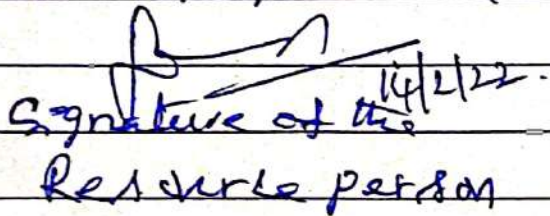 14/2/22.
Signature of the
Resource person